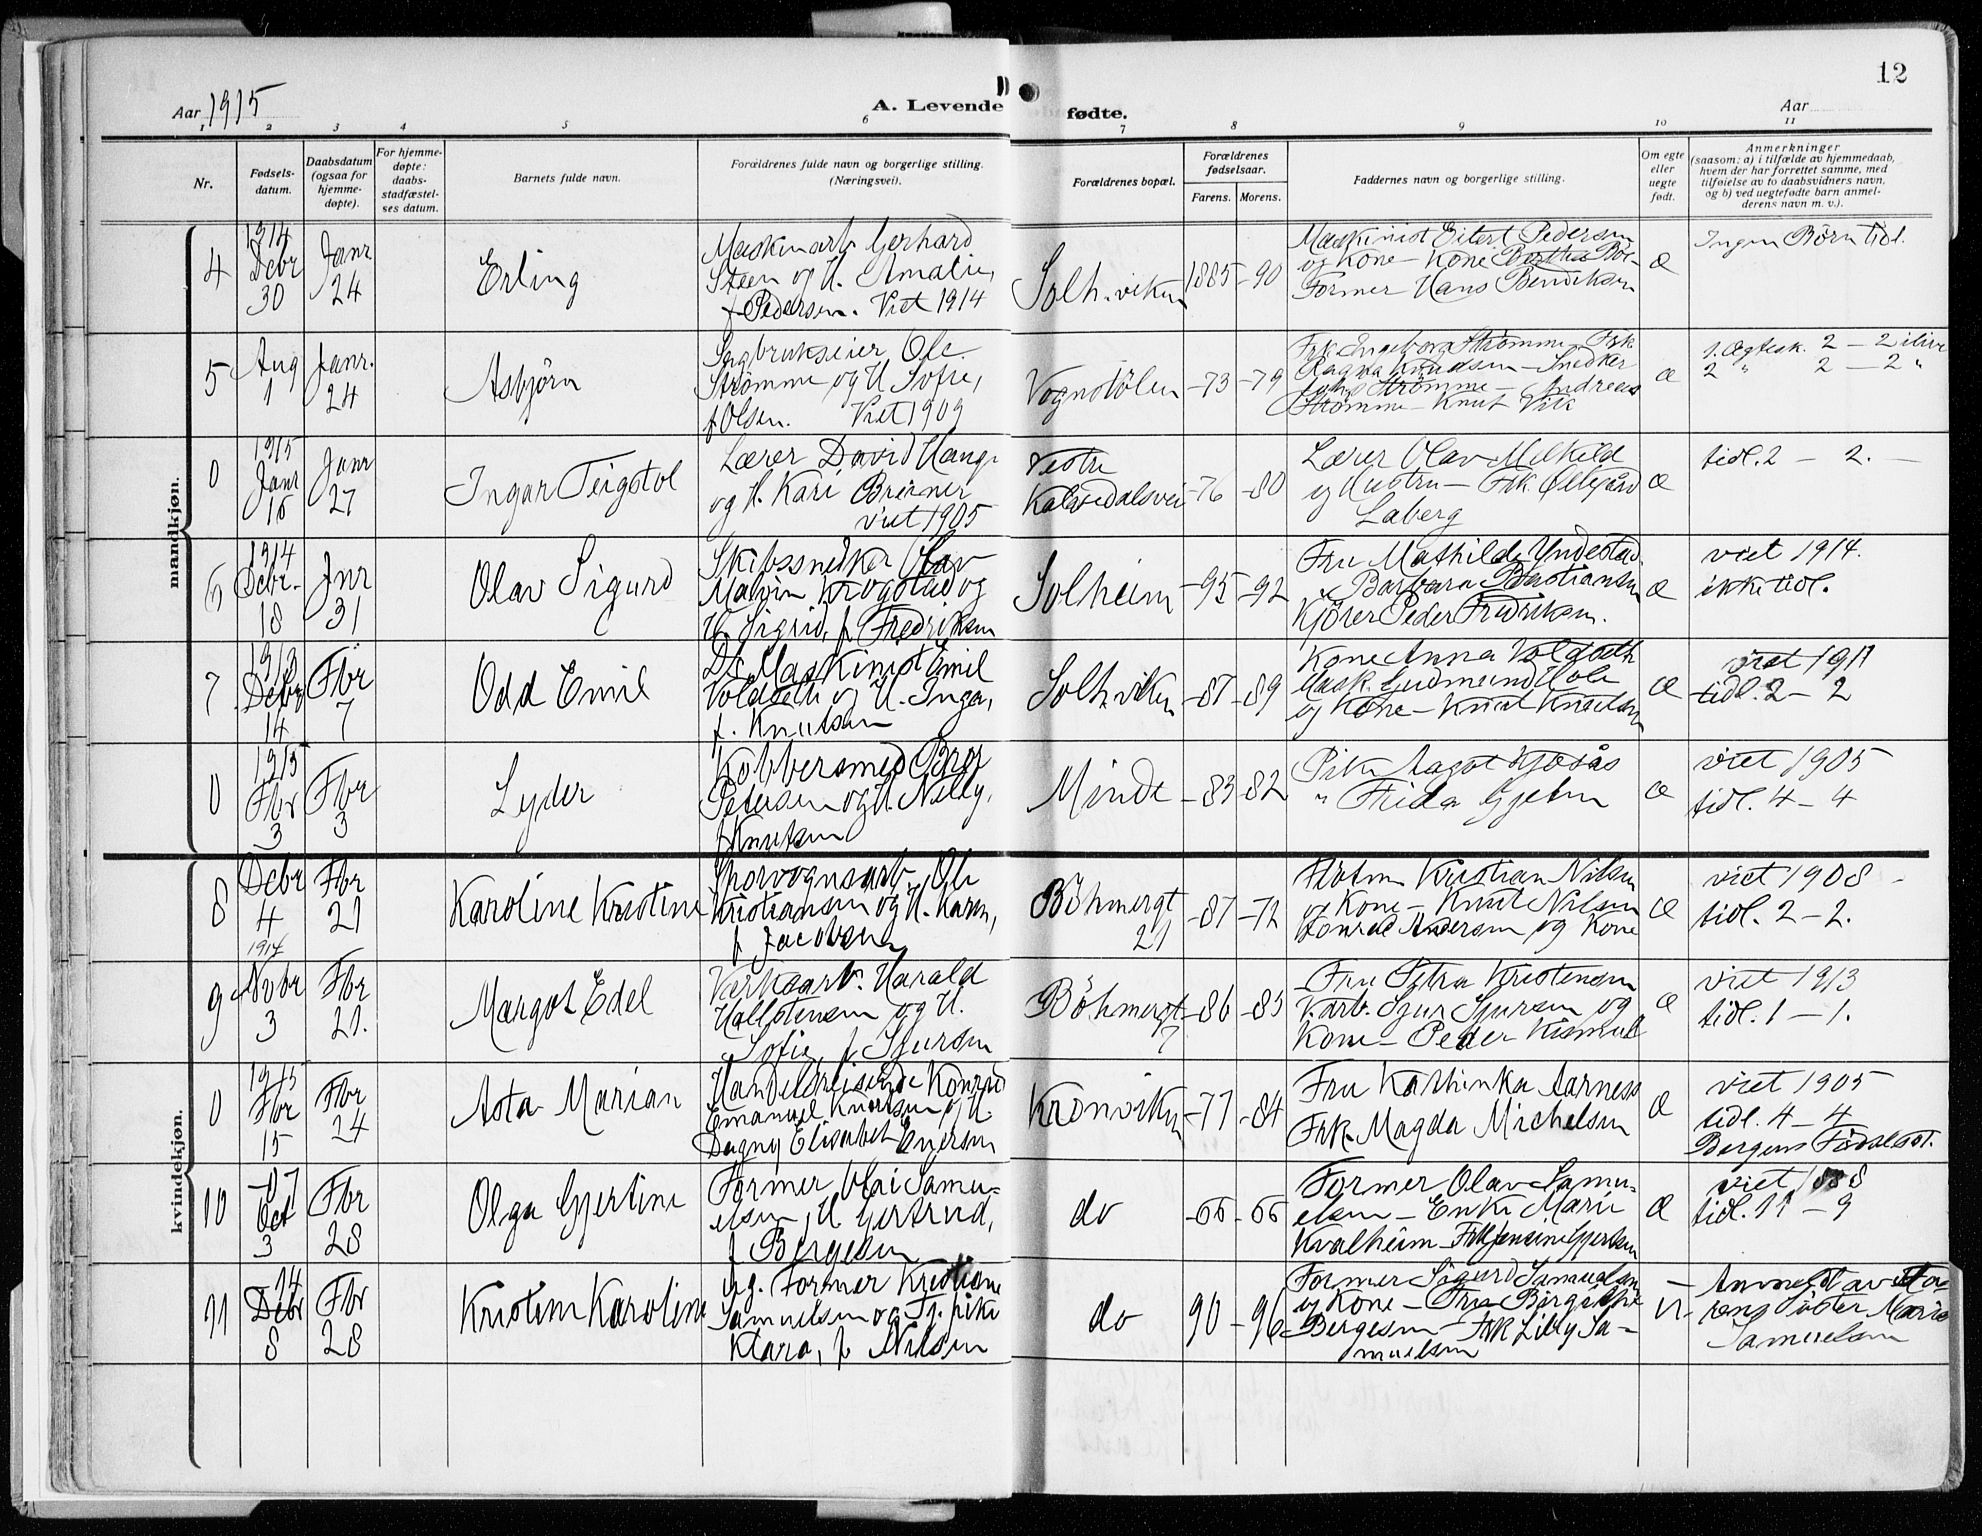 Aar 1915
A. Levende fødte.
Aar
12
1 2 3 4 5 6 7 8 9 10 11
Nr.
Fødsels-
datum.
Daabsdatum
(ogsaa for
hjemme-
døpte).
For hjemme-
døpte:
daabs-
stadfæstel-
ses datum.
Barnets fulde navn.
Forældrenes fulde navn og borgerlige stilling.
(Næringsvei).
Forældrenes bopæl.
Forældrenes
fødselsaar.
Farens. Morens.
Faddernes navn og borgerlige stilling.
Om egte
eller
uegte
født.
Anmerkninger
(saasom: a) i tilfælde av hjemmedaab,
hvem der har forrettet samme, med
tilføielse av to daabsvidners navn,
og b) ved uegtefødte barn anmel-
derens navn m. v.).
mandkjøn.
4
1914
Debr
30
Janr
24
Erling
Maskinarb Gerhard
Steen og H. Amalie,
f Pedersen. Viet 1914
Solh.viken
1885 -90
Maskinist Eilert Pedersen
og Kone - Kone Berthe
Former Hans Bendiksen
æ
Ingen Børn tidl.
5
Aug
1
Janr.
24
Asbjörn
Sagbrukseier Ole
Strömme og H Sofie,
f Olsen. Viet 1909
Vognstölen
-73 -79
Frk Ingeborg Strömme - Frk
Ragna Knudsen - Snedker
Johs Strömme - Andreas
Strömme - Knut Vik
æ
1. Ægtesk. 2 - 2 ilive
2 " 2 - 2 "
0
1915
Janr
16
Janr
27
Ingar Teigstol
Lærer David Hauge
og H. Kari Breiner
viet 1905
Vestre
Kalvedalsvei
-76 -80
Lærer Olav Melkild
og Hustru - Frk. Ollegård
Laberg
æ
tidl. 2 - 2. -
6
1914
Debr.
18
Jnr
31
Olav Sigurd
Skibssnedker Olav
Malvin Krogstad og
H. Sigrid, f. Fredriksen
Solheim
-95 -92
Fru Mathilde Yndestad.
" Barbara Bastiansen
Kjörer Peder Fredriksen.
æ
viet 1914.
ikke tidl.
7
1913
Debr
14
Fbr
7
Odd Emil
Ds. Maskinist Emil
Voldseth og H. Inga,
f. Knutsen
Solh.viken
-87 -89
Kone Anna Voldseth
Mask. Gudmund Hole
og Kone - Knut Knutsen
æ
viet 1911
tidl. 2 - 2
0
1915
Fbr
3
Fbr
3
Lyder
Kobbersmed Bror
Petersen og H Nelly,
f Knutsen
Minde
-83 -82
Pike Aagot Kjosås
" Frida Gjelen
æ
viet 1905
tidl. 4 - 4
kvindekjøn.
8
Debr
4
1914
Fbr
21
Karoline Kristine
Sporvognsarb Ole
Kristiansen og H. Karen,
f Jacobsen
Böhmergt
21
-87 -72
Kristian Nilsen
og Kone - Knut Nilsen
Konrad Andersen og Kone
æ
viet 1908 -
tidl. 2 - 2.
9
Nvbr
3
Fbr
21.
Margot Edel
Verksarb. Harald
Hallstensen og H.
Sofie, f Sjursen
Böhmergt
7
-86 -85
Fru Petra Kristensen
V.arb. Sjur Sjursen og
Kone - Peder Kismul
æ
viet 1913
tidl. 1 - 1.
0
1915
Fbr
15
Fbr
24
Asta Marian
Handelsreisende Konrad
Emanuel Knudsen og H.
Dagny Elisabet Enersen
Kronviken
-77 -84
Fru Kathinka Aarness
Frk. Magda Michelsen
æ
viet 1905
tidl. 4 - 4
Bergens Födselsst.
10
-07
Oct
3
Fbr
28
Olga Gjertine
Former Olai Samu-
elsen, H Gertrud,
f Bergesen
do
-66 -66
Former Olav Samu-
elsen - Enke Marie
Kvalheim - Frk Jensine Gjertsen
æ
viet 1888
tidl. 11 - 9
11
14
Debr
8
Fbr
28
Kristine Karoline
Ug. Former Kristian
Samuelsen og tj. pike
Klara, f Nilsen
do
90 -96
Former Sigurd Samuelsen
og Kone - Fru Birgitte
Bergesen - Frk Lilly Sa-
muelsen
u.
- Anmeldt av Fa-
rens söster Marie
Samuelsen